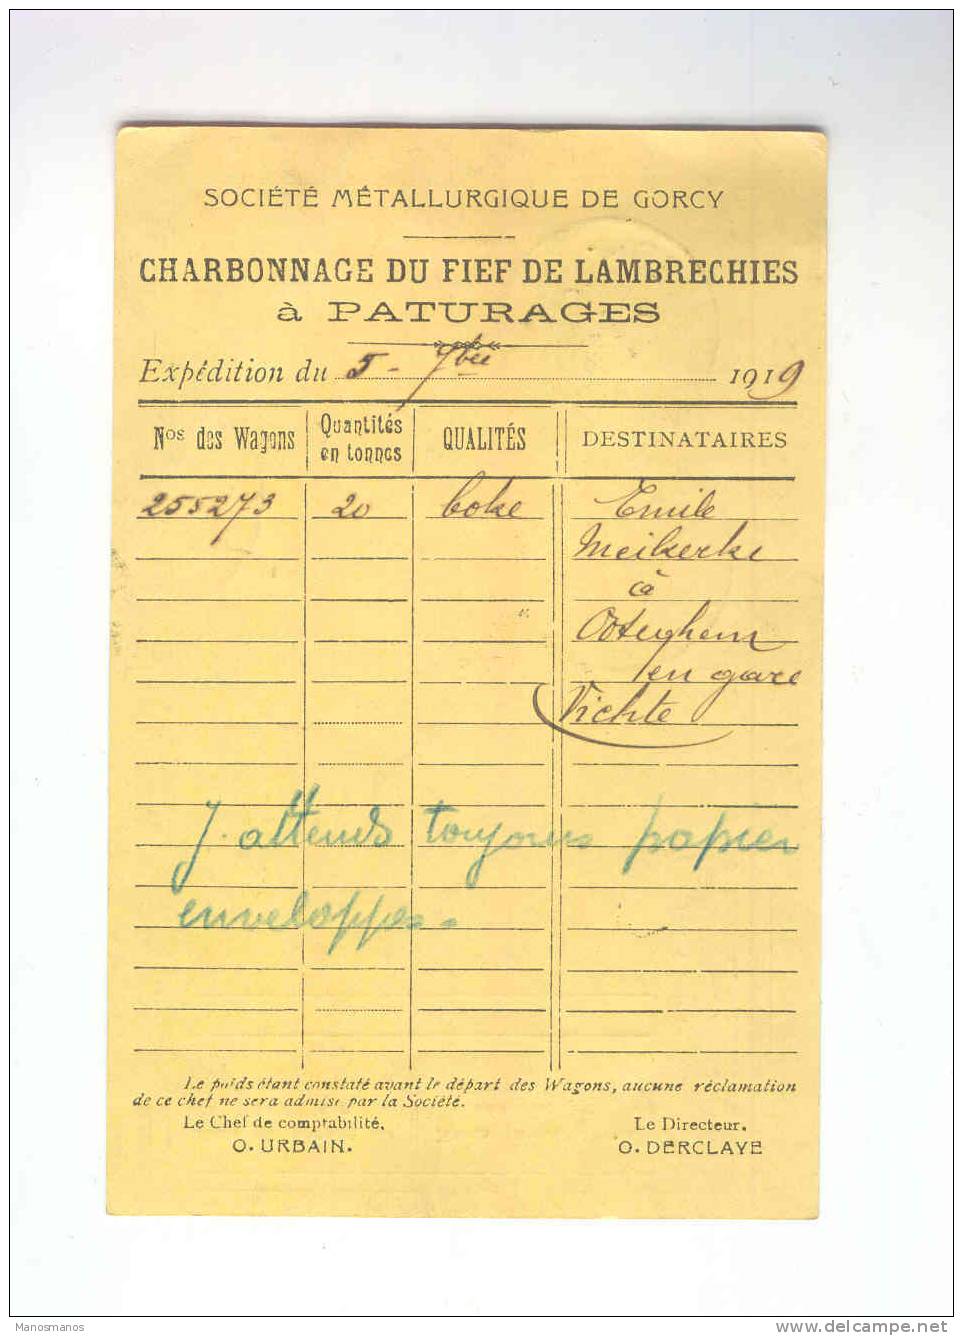 SOCIÉTÉ MÉTALLURGIQUE DE GORCY
CHARBONNAGE DU FIEF DE LAMBRECHIES
à PATURAGES
Expédition du 5 - 7bre 1919
Nos des Wagons Quantités en tonnes QUALITÉS DESTINATAIRES
255273 20 Coke Emile
Meikerke
à
Ooteghem
en gare
Vichte
J. attends toujours papier
enveloppes.
Le poids étant constaté avant le départ des Wagons, aucune réclamation
de ce chef ne sera admise par la Société.
Le Chef de comptabilité, Le Directeur.
O. URBAIN. O. DERCLAYE
Manosmanos
www.delcampe.net